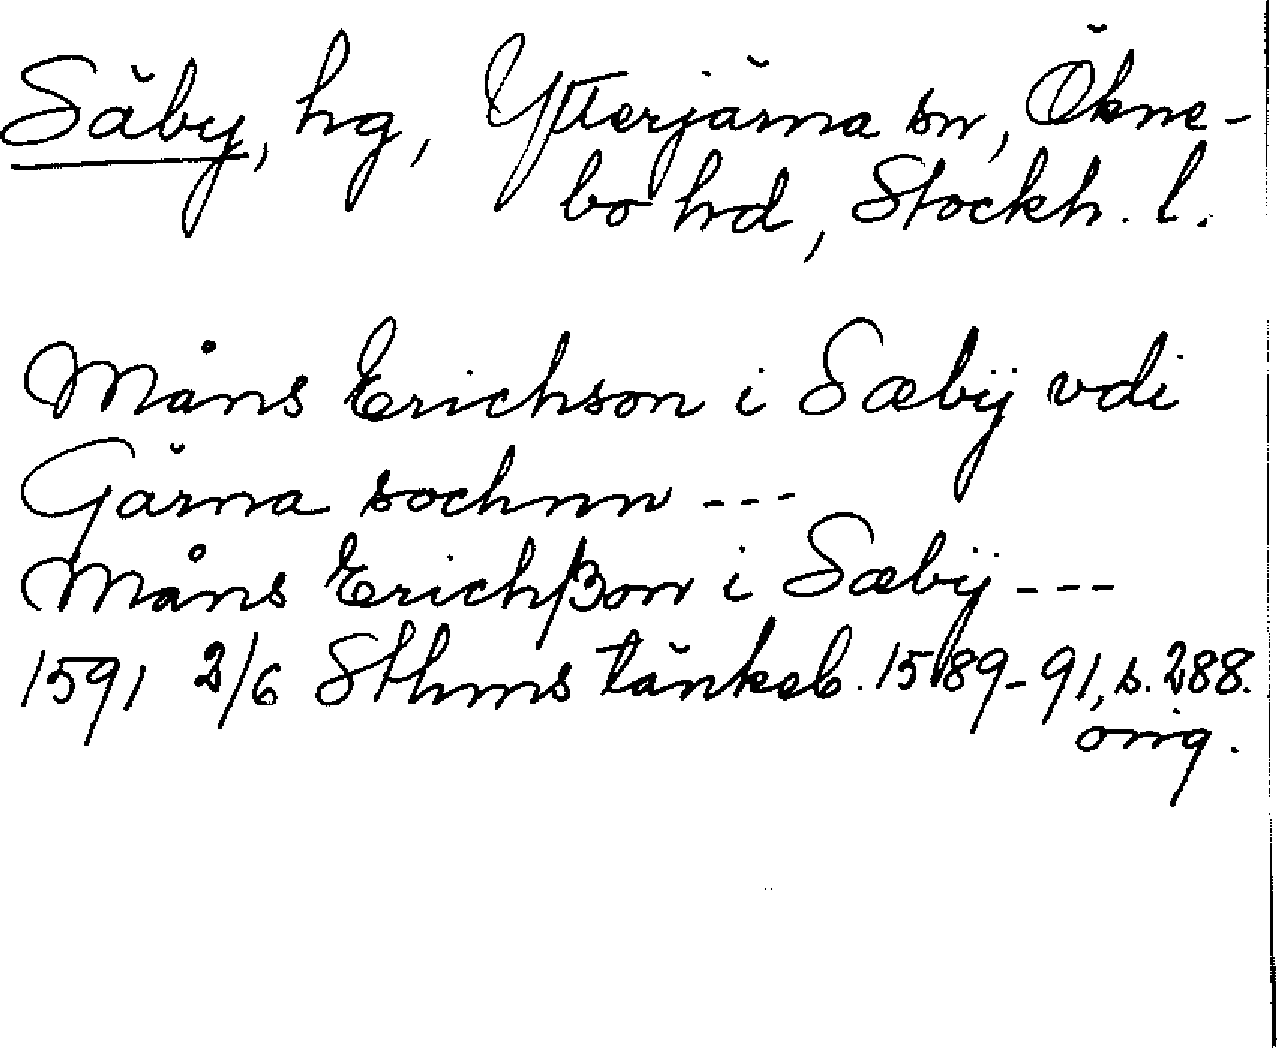 Säby, hg, Ytterjärna sn, Ökne-
bo hd, Stockh. l.
Måns Erichson i Sæbÿ vdi
Gärna sochnn ---
Måns Erichßon i Sæbÿ ---
1591 2/6 Sthms tänkeb. 1589-91, s. 288.
orig.